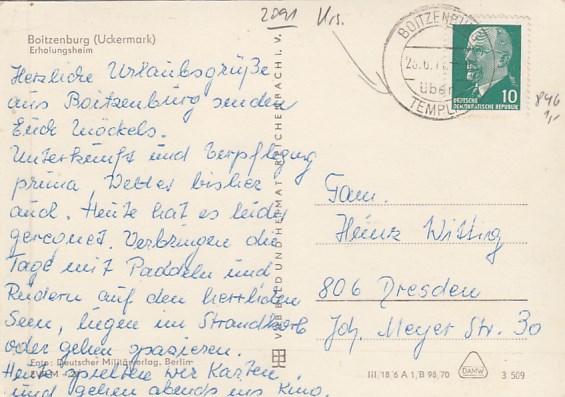 2091 Urs.
Boitzenburg (Uckermark)
Erholungsheim
Herzliche Urlaubsgrüße
aus Boitzenburg senden
Euch Möckels.
Unterkunft und Verpflegung
prima, Wetter bisher
auch. Heute hat es leider
geregnet. Verbringen die
Tage mit Paddeln und
Rudern auf den herrlichen
Seen, liegen im Strandkorb
oder gehen spazieren.
Heute spielten wir Karten
und gehen abends ins Kino.
Foto: Deutscher Militärverlag, Berlin
VEB BILD UND HEIMAT REICHENBACH I. V.
BOITZENBURG
über
TEMPL
10
DEUTSCHE
DEMOKRATISCHE REPUBLIK
846
1,-
Fam.
Heinz Wittig
806 Dresden
Joh. Meyer Str. 30
III/18/6 A 1/B 98/70
DAMW
3 509